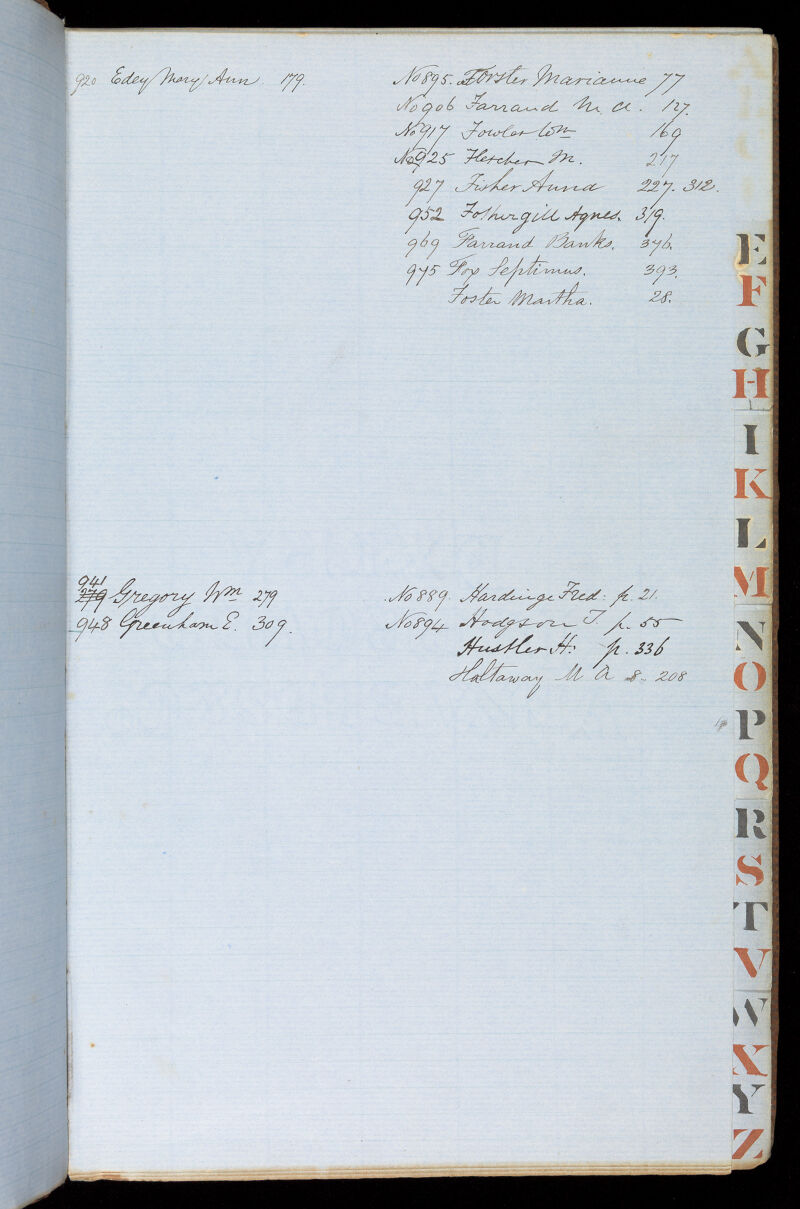 920 Edey Mary Ann 179.
No 895. Forster Marianne 77
No 906 Farrand M. A. 127.
No 917 Fowler Wm 169
No 925 Flercher M. 217
927 Fisher Anna 227. 312.
952 Fothergill Agnes. 319.
969 Farrand Banks. 376.
975 Fox Septimus. 393.
Foster Martha. 28.
941
279 Gregory Wm 279
948 Greenham E. 309.
No 889. Hardinge Fred: p. 21.
No 894 Hodgson T. p. 55
Hustler H: p. 336
Holtaway M A 8- 208
E
F
G
H
I
K
L
M
N
O
P
Q
R
S
T
V
W
X
Y
Z